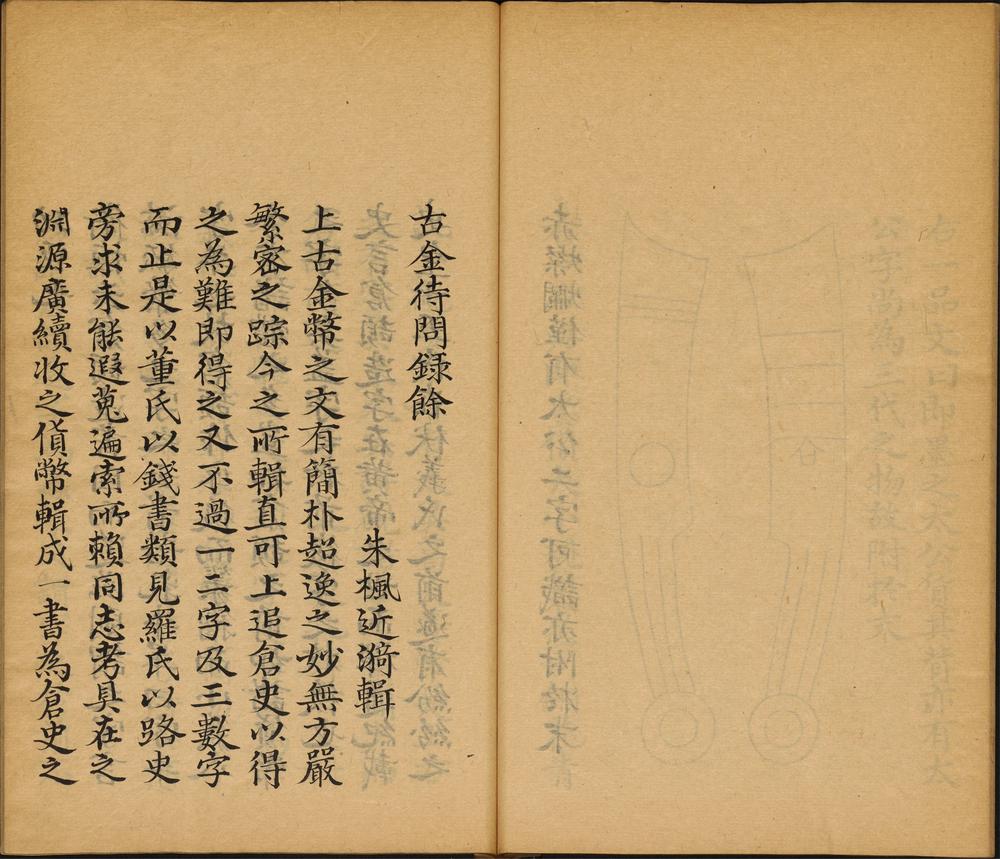 古金待問録餘
朱楓近漪輯
上古金幣之文有簡朴超逸之妙無方嚴
繁宻之踪今之所輯直可上追倉史以得
之為難即得之又不過一二字及三數字
而止是以董氏以錢書類見羅氏以路史
旁求未能遐蒐遍索所賴同志考具在之
淵源廣續收之貨幣輯成一書為倉史之